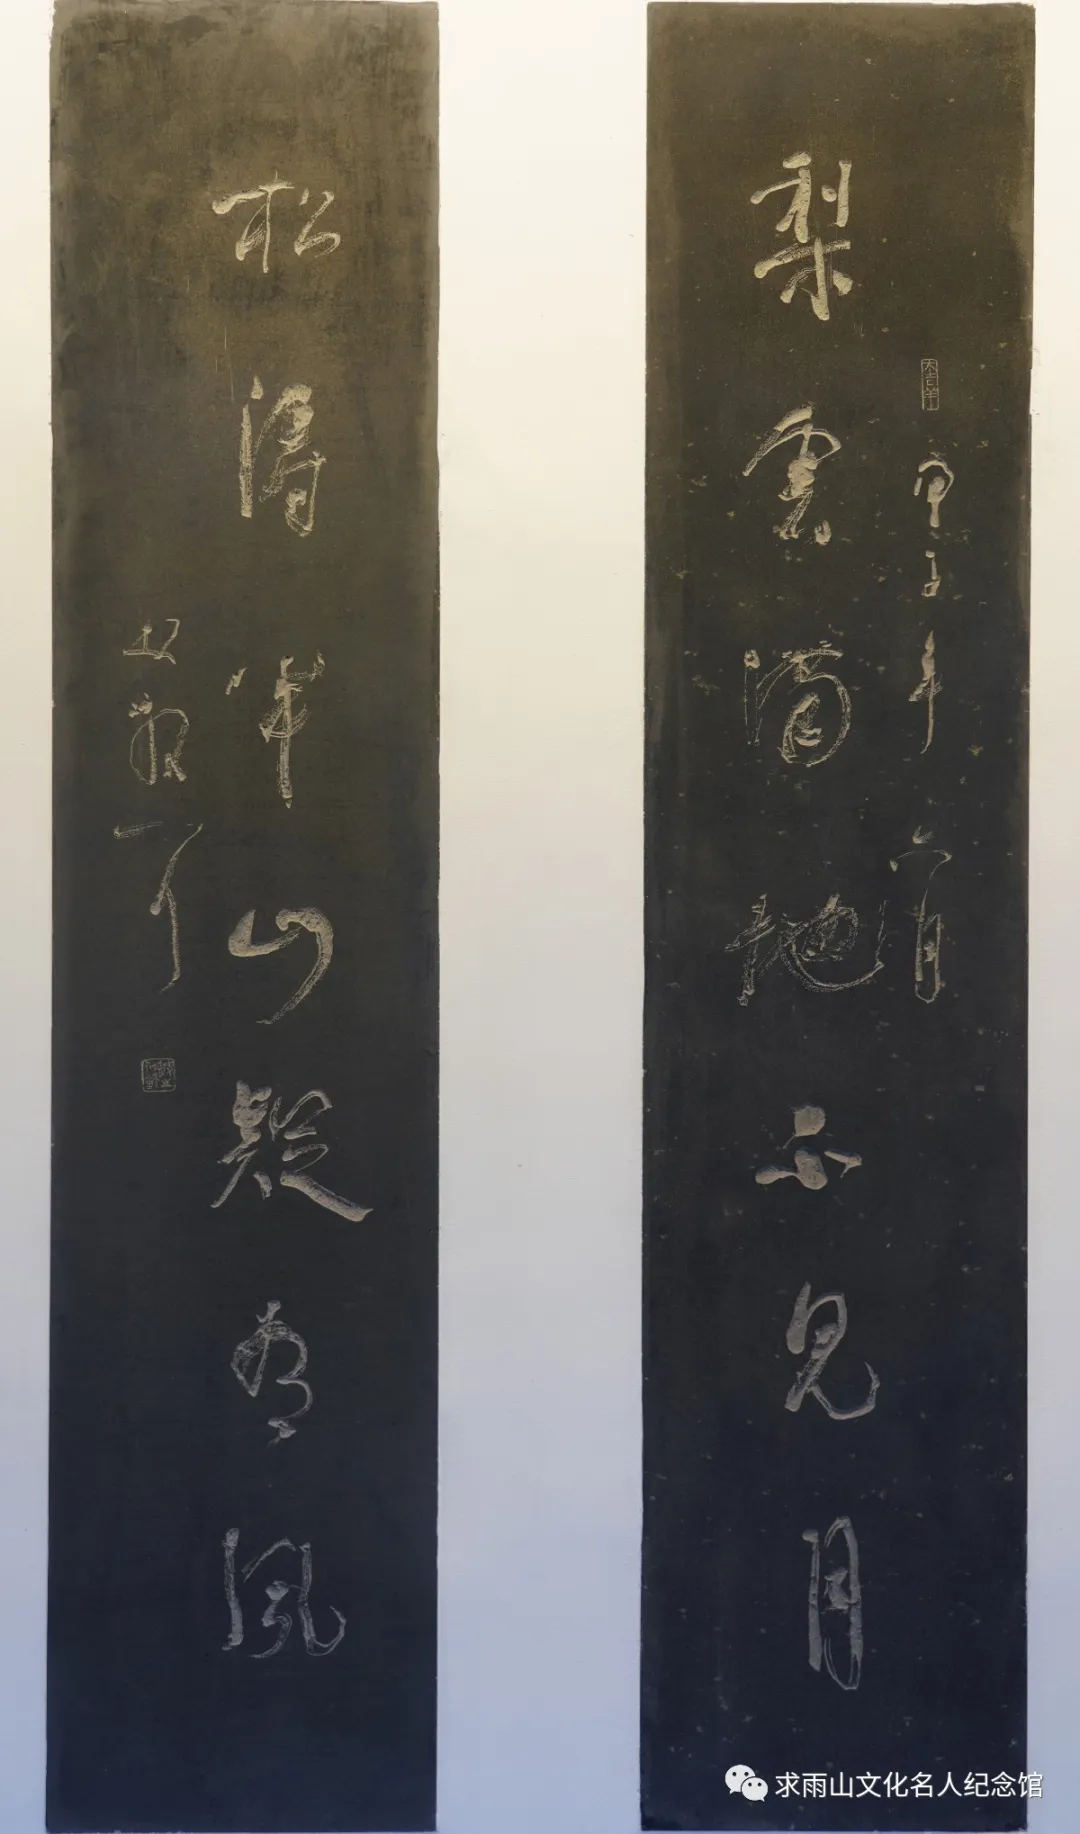 大吉羊
甲子年六月
梨雲滿地不見月
松濤半山疑為風
林散耳
求雨山文化名人纪念馆